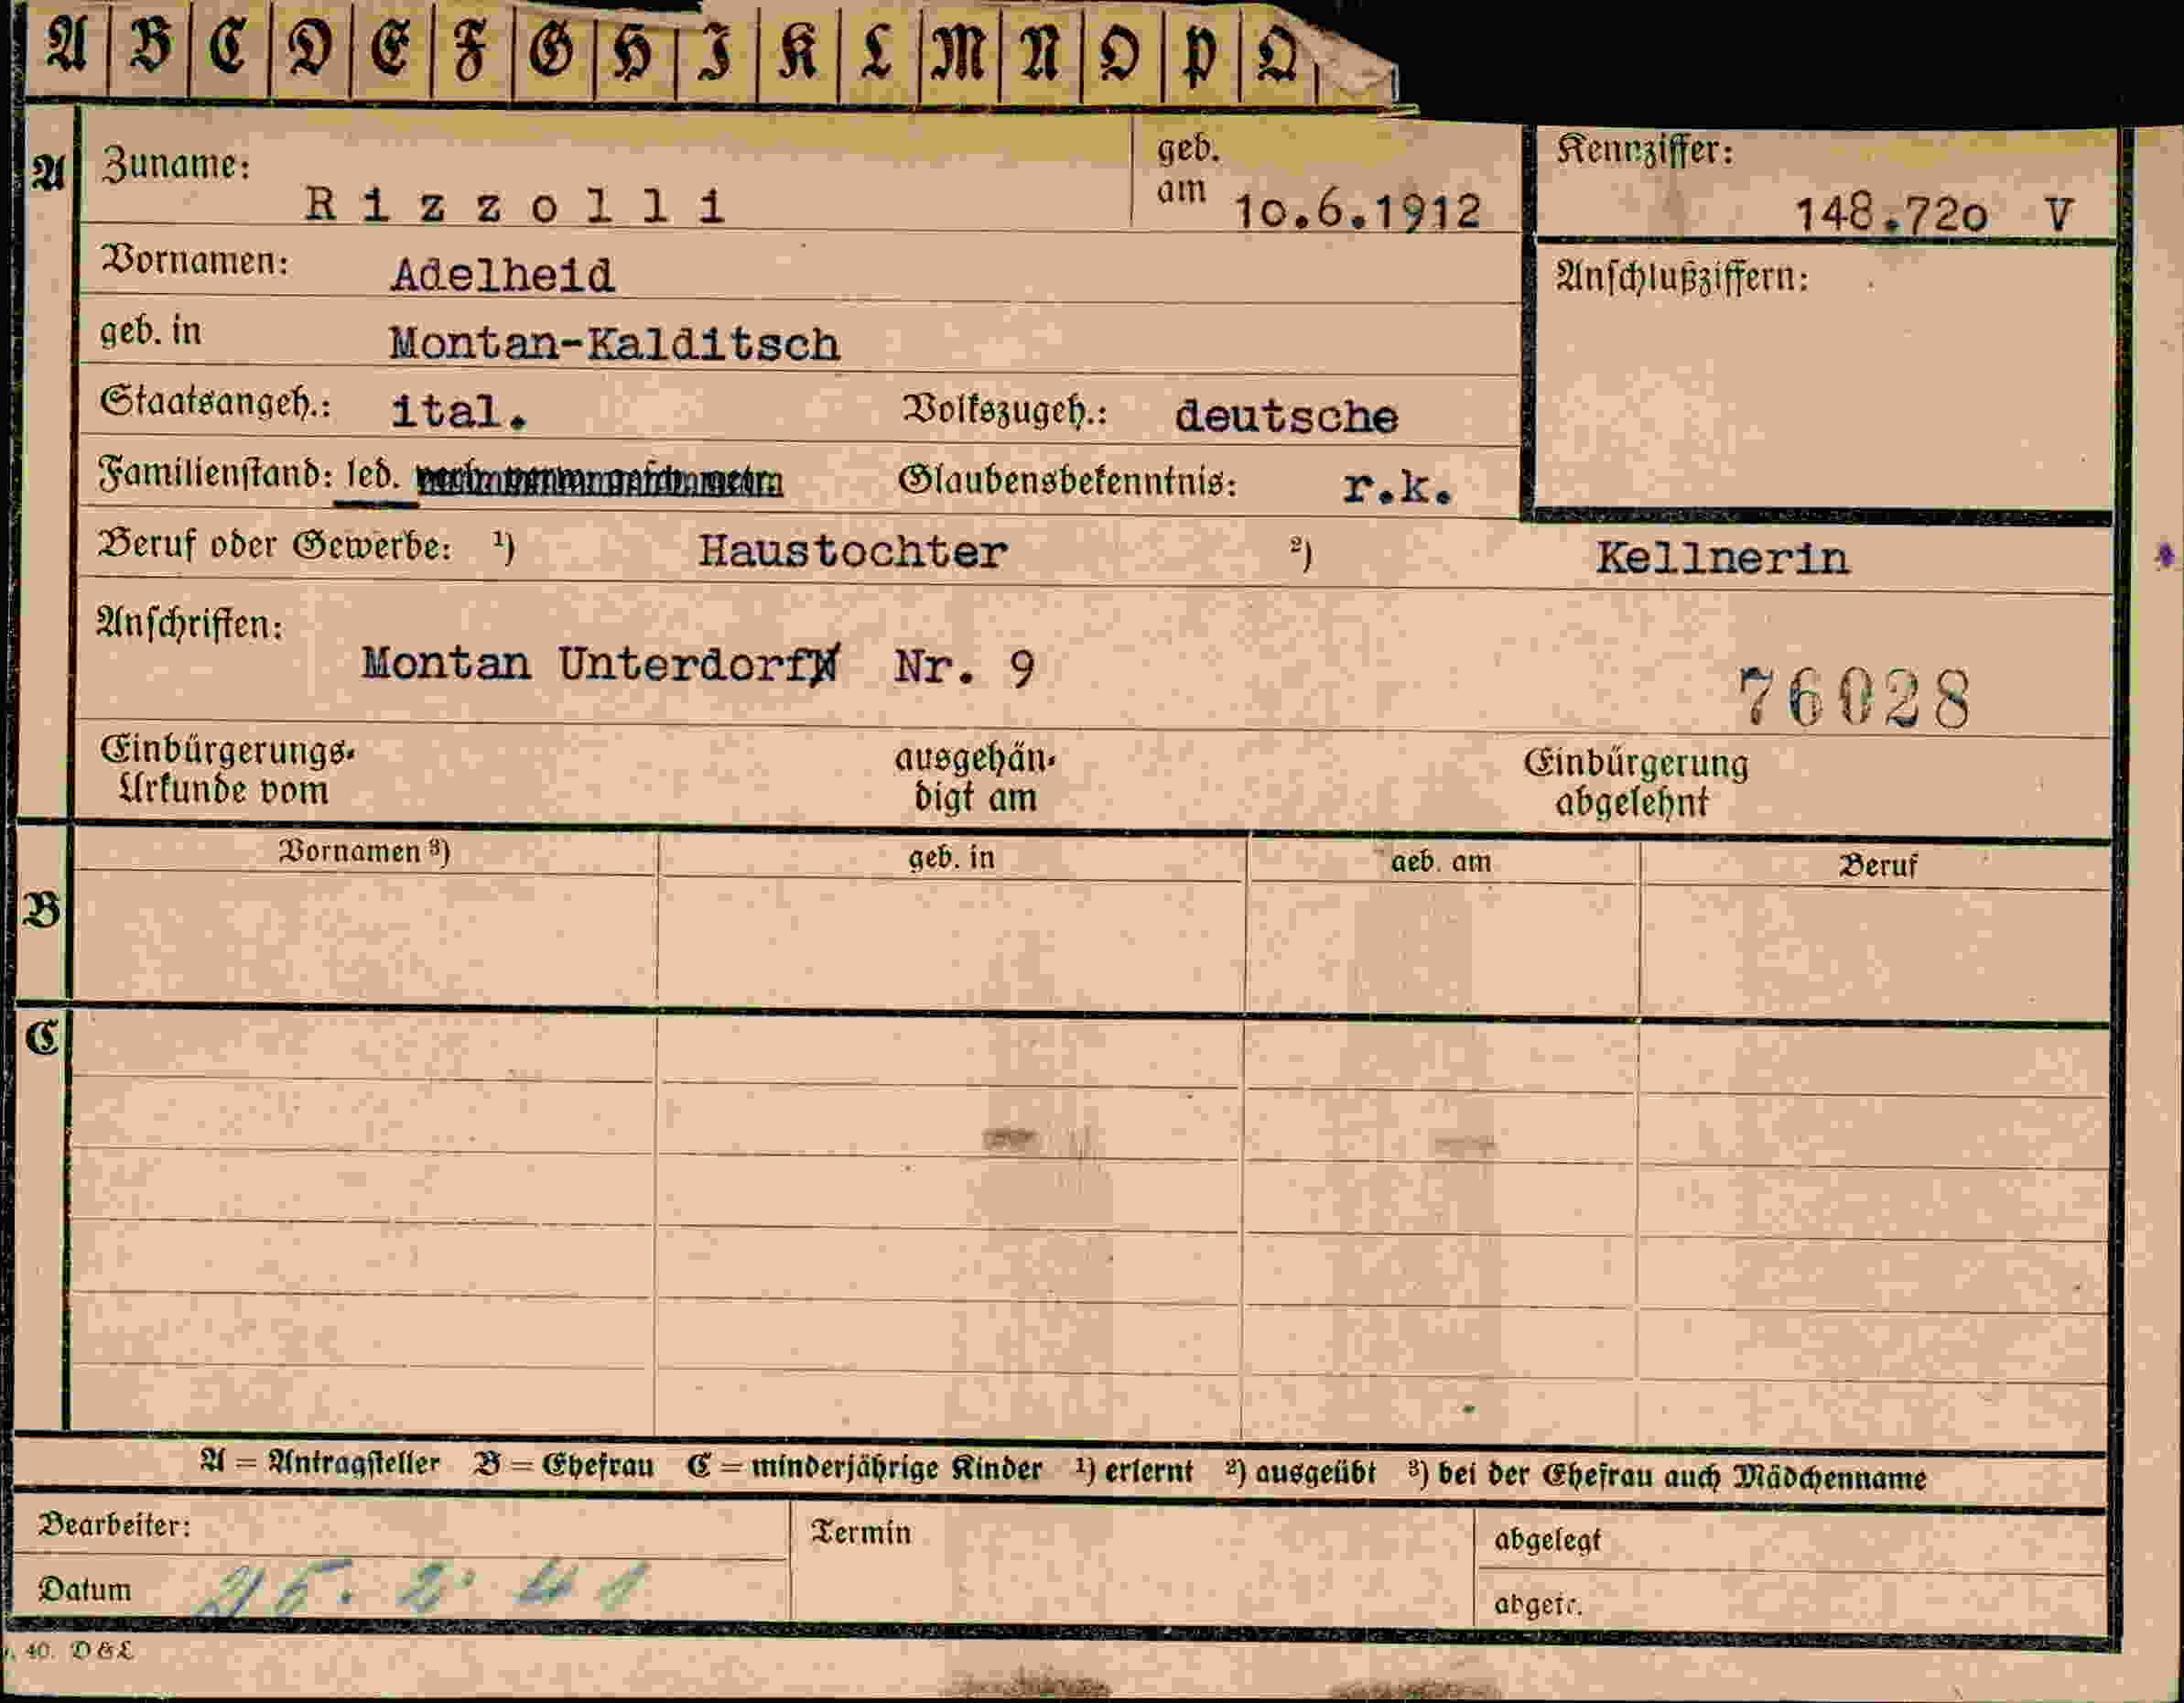 A B C D E F G H I K L M N O P Q
A
Zuname: R i z z o l l i
geb. am 1o.6.1912
Kennziffer: 148.72o V
Vornamen: Adelheid
Anschlußziffern:
geb. in Montan-Kalditsch
Staatsangeh.: ital. Volkszugeh.: deutsche
Familienstand: led. Glaubensbekenntnis: r.k.
Beruf oder Gewerbe: ¹) Haustochter ²) Kellnerin
Anschriften:
Montan Unterdorf Nr. 9
76028
Einbürgerungs-
Urkunde vom
ausgehän-
digt am
Einbürgerung
abgelehnt
Vornamen ³) geb. in geb. am Beruf
B
C
A = Antragsteller B = Ehefrau C = minderjährige Kinder ¹) erlernt ²) ausgeübt ³) bei der Ehefrau auch Mädchenname
Bearbeiter:
Termin
abgelegt
Datum 25. 2. 41
abgetr.
40. D & L